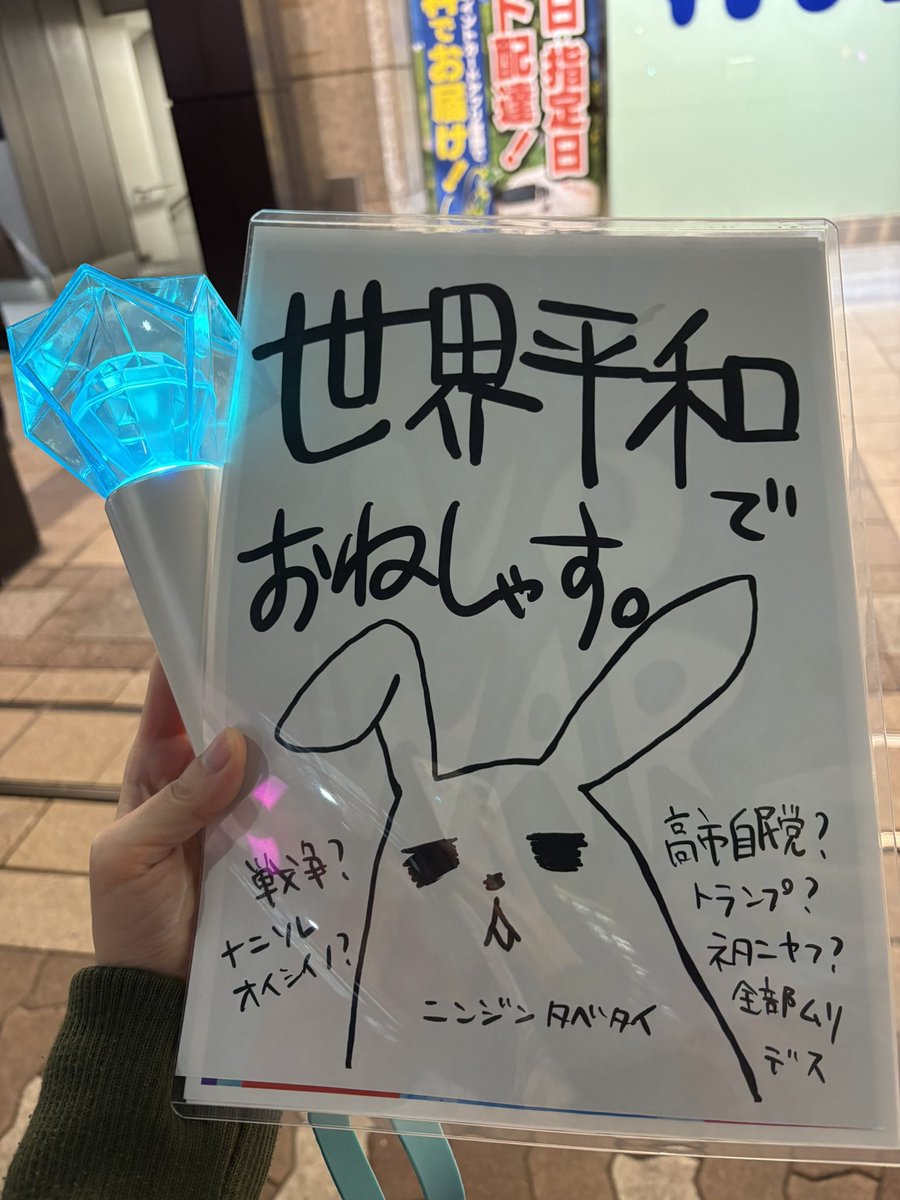 日指定日
ト配達！
でお届け！
世界平和
で
おねしゃす。
戦争？
ナニソレ
オイシイノ？
高市自民党？
トランプ？
ネタニヤフ？
全部ムリ
デス
ニンジンタベタイ